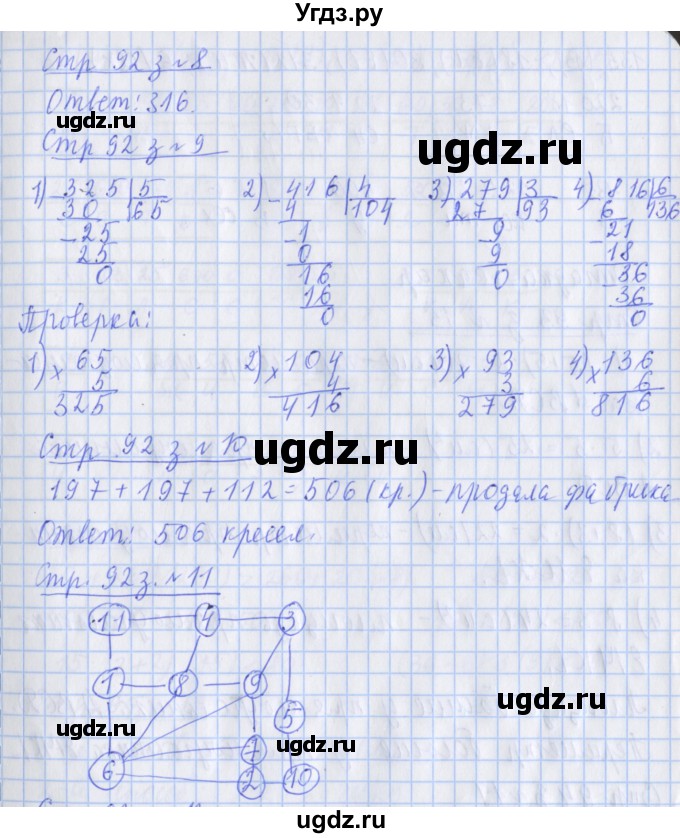 Угдз.ру
Стр 92 з №8
Ответ: 316.
ugdz.ru
ugdz.ru
Стр 92 з №9
1) 325 | 5 2) 416 | 4 3) 279 | 3 4) 816 | 6
30 65 4 104 27 93 6 136
25 1 9 21
25 0 9 18
0 16 0 36
16 36
0 0
Проверка:
1) × 65 2) × 104 3) × 93 4) × 136
5 4 3 6
325 416 279 816
ugdz.ru
ugdz.ru
Стр 92 з №10
197+197+112=506 (кр.) - продала фабрика
Ответ: 506 кресел.
Стр. 92 з. №11
11 4 3
1 8 9
ugdz.ru
5
ugdz.ru
7
ugdz.ru
6 2 10
ugdz.ru
Угдз.ру